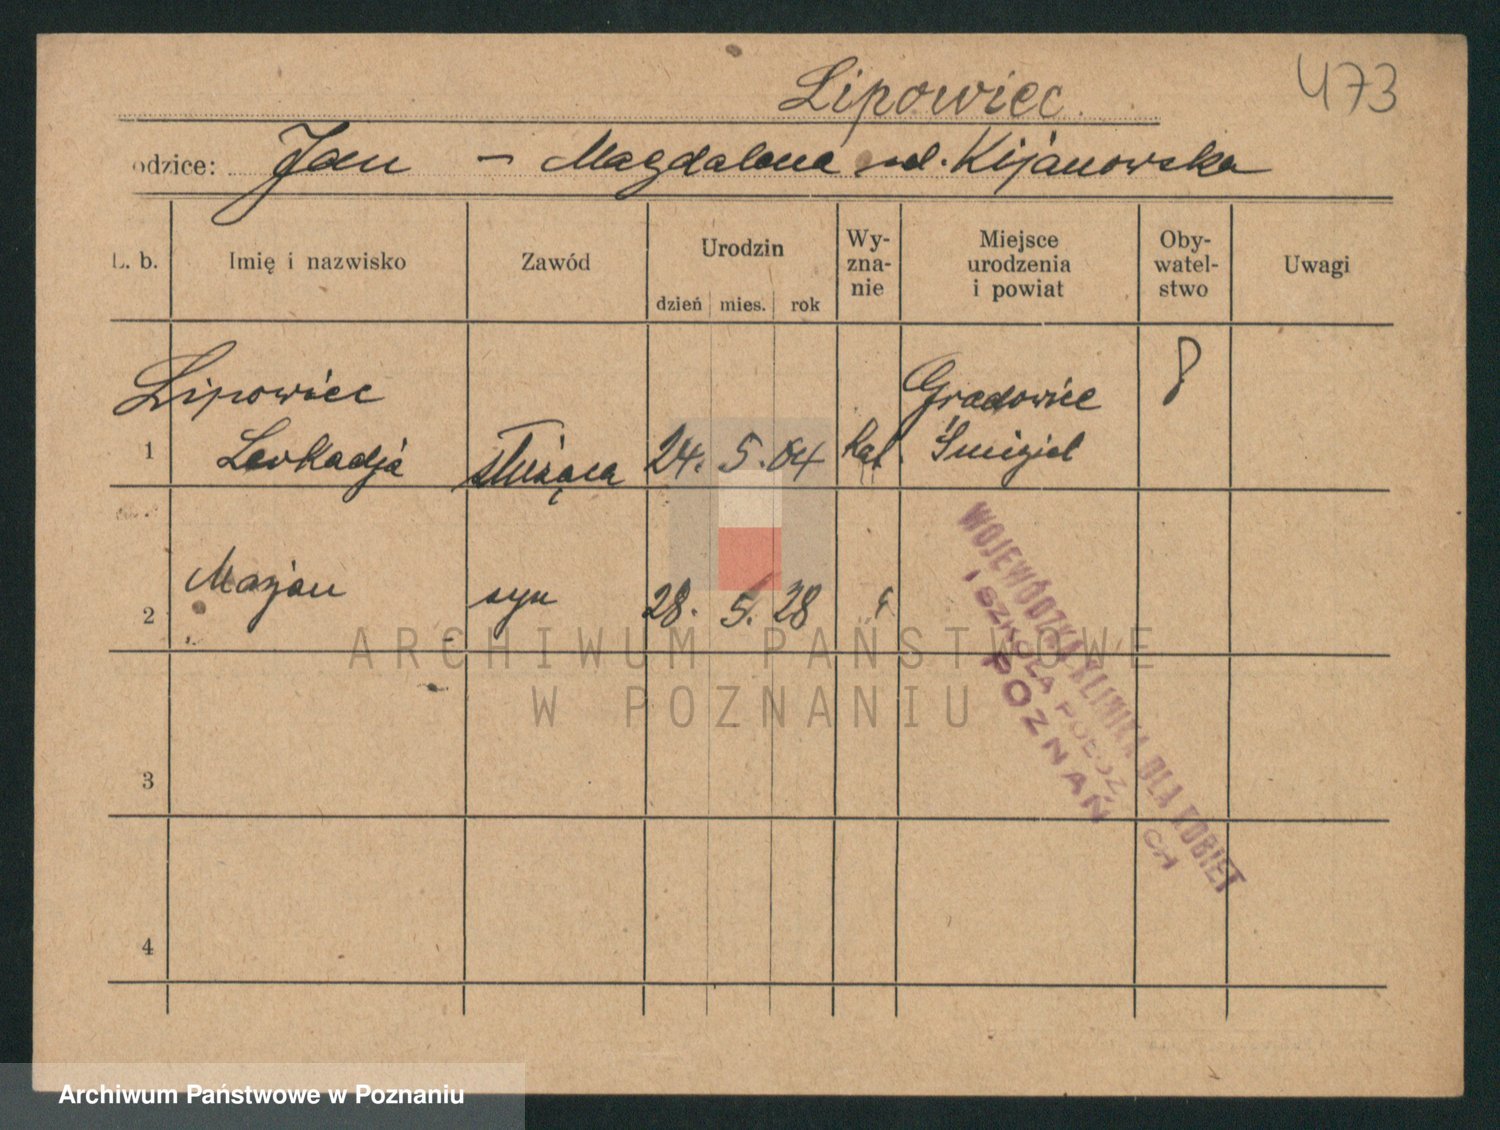 473
Lipowiec
odzice: Jan - Magdalena
L. b. Imię i nazwisko Zawód Urodzin dzień mies. rok Wy-zna-nie Miejsce urodzenia i powiat Oby-watel-stwo Uwagi
Lipowiec Gradowice
1 Leokadja służąca 24. 5. 04 kat. Śmigiel
2 Marjan syn 28. 5. 28 "
3
4
WOJEWÓDZKA KLINIKA DLA KOBIET
I SZKOŁA POŁOŻ CH
POZNAŃ
ARCHIWUM PAŃSTWOWE
W POZNANIU
Archiwum Państwowe w Poznaniu